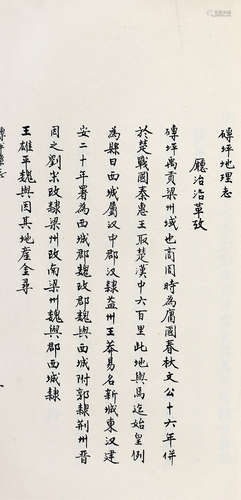 磚坪地理志
廳治沿革攷
磚坪禹貢梁州域也商周時為庸國春秋文公十六年併
於楚戰國秦惠王取楚漢中六百里此地與焉迄始皇例
為縣曰西城屬漢中郡漢隸益州王莽易名新城東漢建
安二十年署為西城郡魏改郡魏興西城附郭隸荊州晉
因之劉宋改隸梁州攷南梁州魏興郡西城隸
王雄平魏興因其地產金尋